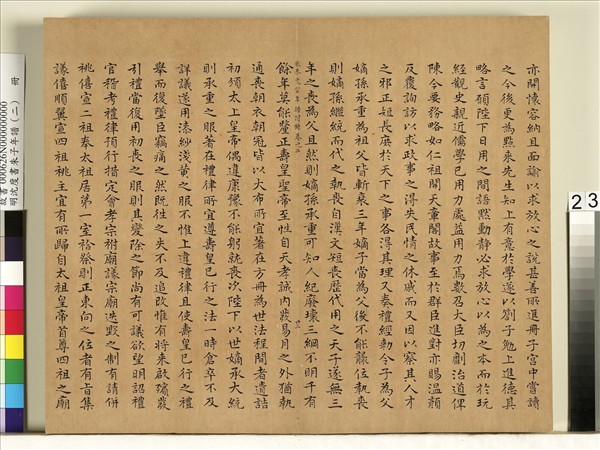 亦開懷容納且面諭以求放心之說甚善所進冊子宮中嘗讀
之今後更為點來先生知上有意於學遂以劄子勉上進德其
略言願陛下日用之間語默動靜必求放心以為之本而於玩
經觀史親近儒學已用力處益用力焉數召大臣切劘治道俾
陳今要務略如仁祖開天章閣故事至於群臣進對亦賜溫顏
反覆詢訪以求政事之得失民情之休戚而又因以察其人才
之邪正短長庶於天下之事各得其理又奏禮經勅令子為父
嫡孫承重為祖父皆斬衰三年嫡子當為父後不能襲位執喪
則嫡孫繼統而代之執喪自漢文短喪歷代用之天子遂無三
年之喪為父且然則嫡孫承重可知人紀廢壞三綱不明千有
餘年莫能釐正壽皇聖帝至性自天孝誠內發易月之外猶執
通喪朝衣朝冠皆以大布所宜著在方冊為世法程間者遺誥
初頒太上皇帝偶違康豫不能躬就喪次陛下以世嫡承大統
則承重之服著在禮律所宜遵壽皇已行之法一時倉卒不及
詳議遂用漆紗淺黃之服不惟上違禮律且使壽皇已行之禮
舉而復墜臣竊痛之然既往之失不及追改惟有將來啟殯發
引禮當復用初喪之服則其變除之節尚有可議欲望明詔禮
官稽考禮律預行指定會孝宗祔廟議宗廟迭毀之制有請併
祧僖宣二祖奉太祖居第一室祫祭則正東向之位者有旨集
議僖順翼宣四祖祧主宜有所歸自太祖皇帝首尊四祖之廟
明沈度書朱子年譜(二)
2 3